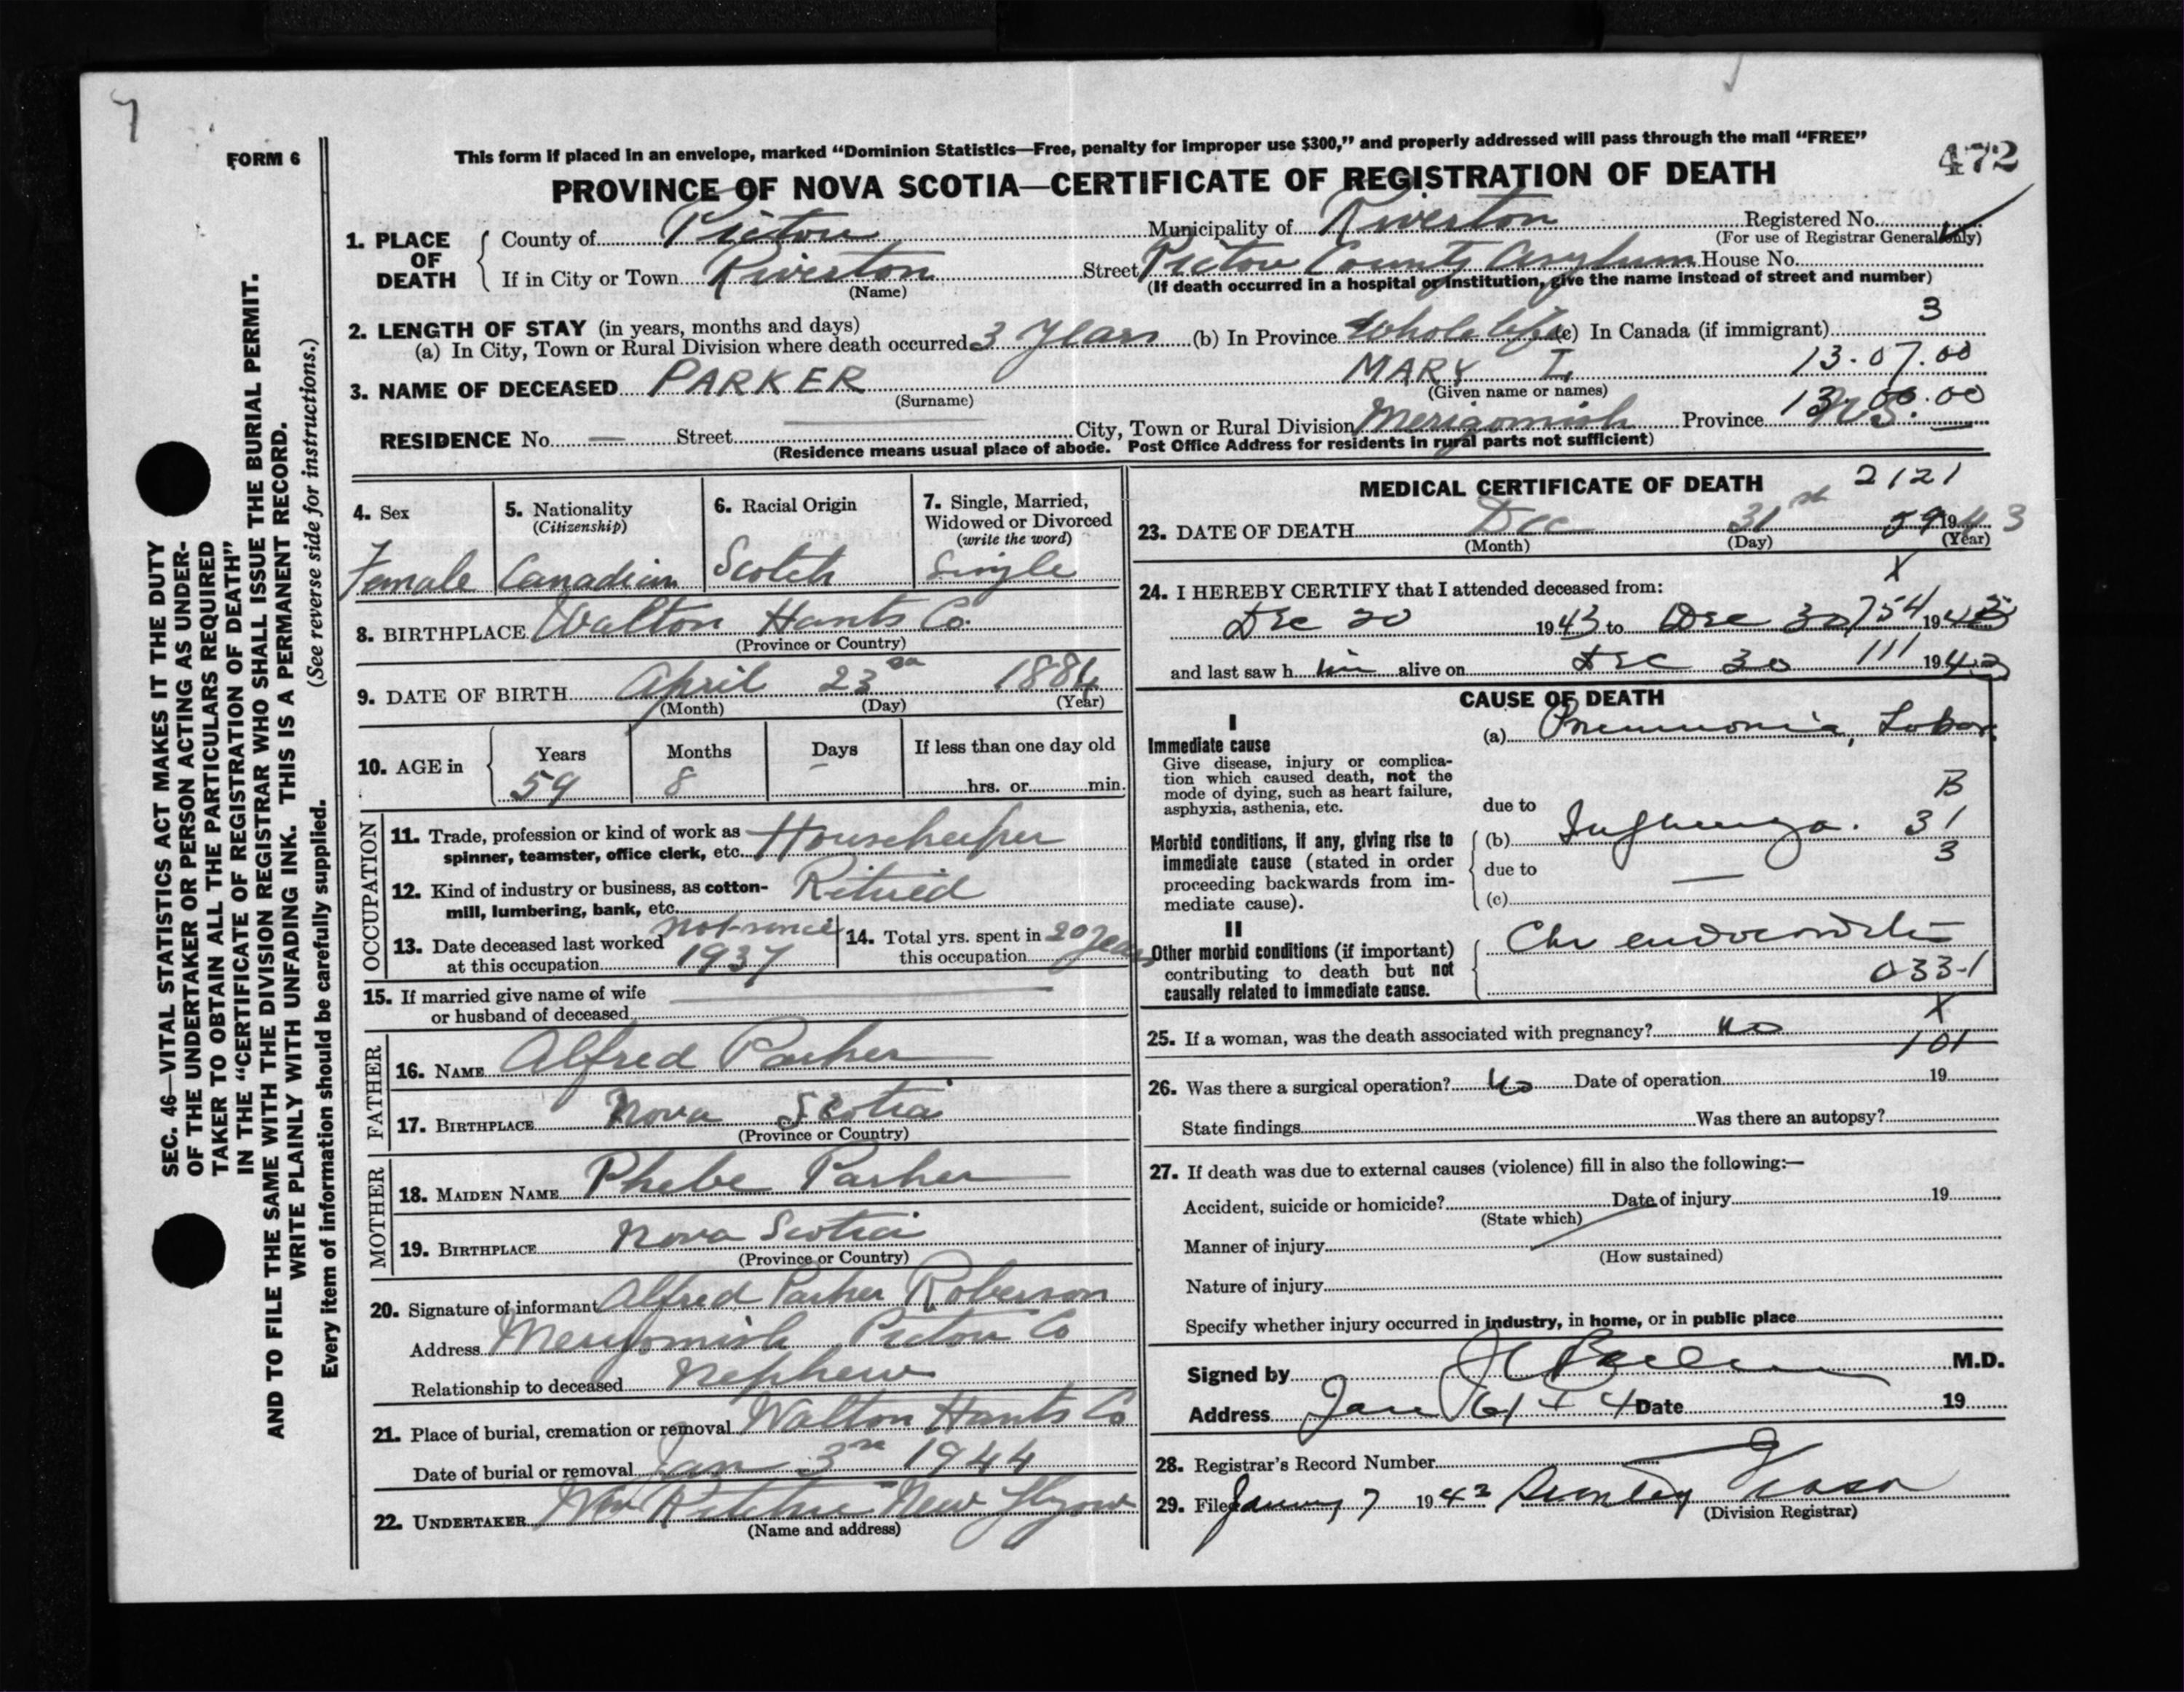 7
FORM 6
This form if placed in an envelope, marked "Dominion Statistics—Free, penalty for improper use $300," and properly addressed will pass through the mail "FREE"
472
PROVINCE OF NOVA SCOTIA—CERTIFICATE OF REGISTRATION OF DEATH
SEC. 46—VITAL STATISTICS ACT MAKES IT THE DUTY
OF THE UNDERTAKER OR PERSON ACTING AS UNDER-
TAKER TO OBTAIN ALL THE PARTICULARS REQUIRED
IN THE "CERTIFICATE OF REGISTRATION OF DEATH"
AND TO FILE THE SAME WITH THE DIVISION REGISTRAR WHO SHALL ISSUE THE BURIAL PERMIT.
WRITE PLAINLY WITH UNFADING INK. THIS IS A PERMANENT RECORD.
(See reverse side for instructions.)
Every item of information should be carefully supplied.
1. PLACE OF DEATH
County of Pictou Municipality of Riverton Registered No.
(For use of Registrar General only)
If in City or Town Riverton Street Pictou County Asylum House No.
(Name) (If death occurred in a hospital or institution, give the name instead of street and number)
2. LENGTH OF STAY (in years, months and days)
(a) In City, Town or Rural Division where death occurred 3 years (b) In Province Whole life (c) In Canada (if immigrant) 3
13.07.00
3. NAME OF DECEASED PARKER MARY I.
(Surname) (Given name or names)
13.00.00
RESIDENCE No. — Street City, Town or Rural Division Merigomish Province N.S.
(Residence means usual place of abode. Post Office Address for residents in rural parts not sufficient)
4. Sex
Female
5. Nationality
(Citizenship)
Canadian
6. Racial Origin
Scotch
7. Single, Married,
Widowed or Divorced
(write the word)
Single
8. BIRTHPLACE Walton Hants Co.
(Province or Country)
9. DATE OF BIRTH April 23rd 1884
(Month) (Day) (Year)
10. AGE in Years Months Days If less than one day old
59 8 — hrs. or min.
OCCUPATION
11. Trade, profession or kind of work as
spinner, teamster, office clerk, etc. Housekeeper
12. Kind of industry or business, as cotton-
mill, lumbering, bank, etc. Retired
13. Date deceased last worked
at this occupation not since 1937
14. Total yrs. spent in
this occupation 20 years
15. If married give name of wife
or husband of deceased
FATHER
16. NAME Alfred Parker
17. BIRTHPLACE Nova Scotia
(Province or Country)
MOTHER
18. MAIDEN NAME Phebe Parker
19. BIRTHPLACE Nova Scotia
(Province or Country)
20. Signature of informant Alfred Parker Roberson
Address Merigomish Pictou Co
Relationship to deceased Nephew
21. Place of burial, cremation or removal Walton Hants Co
Date of burial or removal Jan 3rd 1944
22. UNDERTAKER Wm Ritchie New Glasgow
(Name and address)
MEDICAL CERTIFICATE OF DEATH 2121
23. DATE OF DEATH Dec 31st 59 1943
(Month) (Day) (Year)
X
24. I HEREBY CERTIFY that I attended deceased from:
Dec 20 1943 to Dec 30 754 1943
and last saw h im alive on Dec 30 111 1943
CAUSE OF DEATH
I
Immediate cause
Give disease, injury or complica-
tion which caused death, not the
mode of dying, such as heart failure,
asphyxia, asthenia, etc.
(a) Pneumonia, Lobar.
B
due to
Morbid conditions, if any, giving rise to
immediate cause (stated in order
proceeding backwards from im-
mediate cause).
(b) Influenza. 31
3
due to —
(c)
II
Other morbid conditions (if important)
contributing to death but not
causally related to immediate cause.
Chr endocarditis
033-1
X
25. If a woman, was the death associated with pregnancy? no
101
26. Was there a surgical operation? no Date of operation 19
State findings Was there an autopsy?
27. If death was due to external causes (violence) fill in also the following:—
Accident, suicide or homicide? Date of injury 19
(State which)
Manner of injury
(How sustained)
Nature of injury
Specify whether injury occurred in industry, in home, or in public place
Signed by M.D.
Address Jan 6/44 Date 19
28. Registrar's Record Number
29. Filed January 7 1943
(Division Registrar)